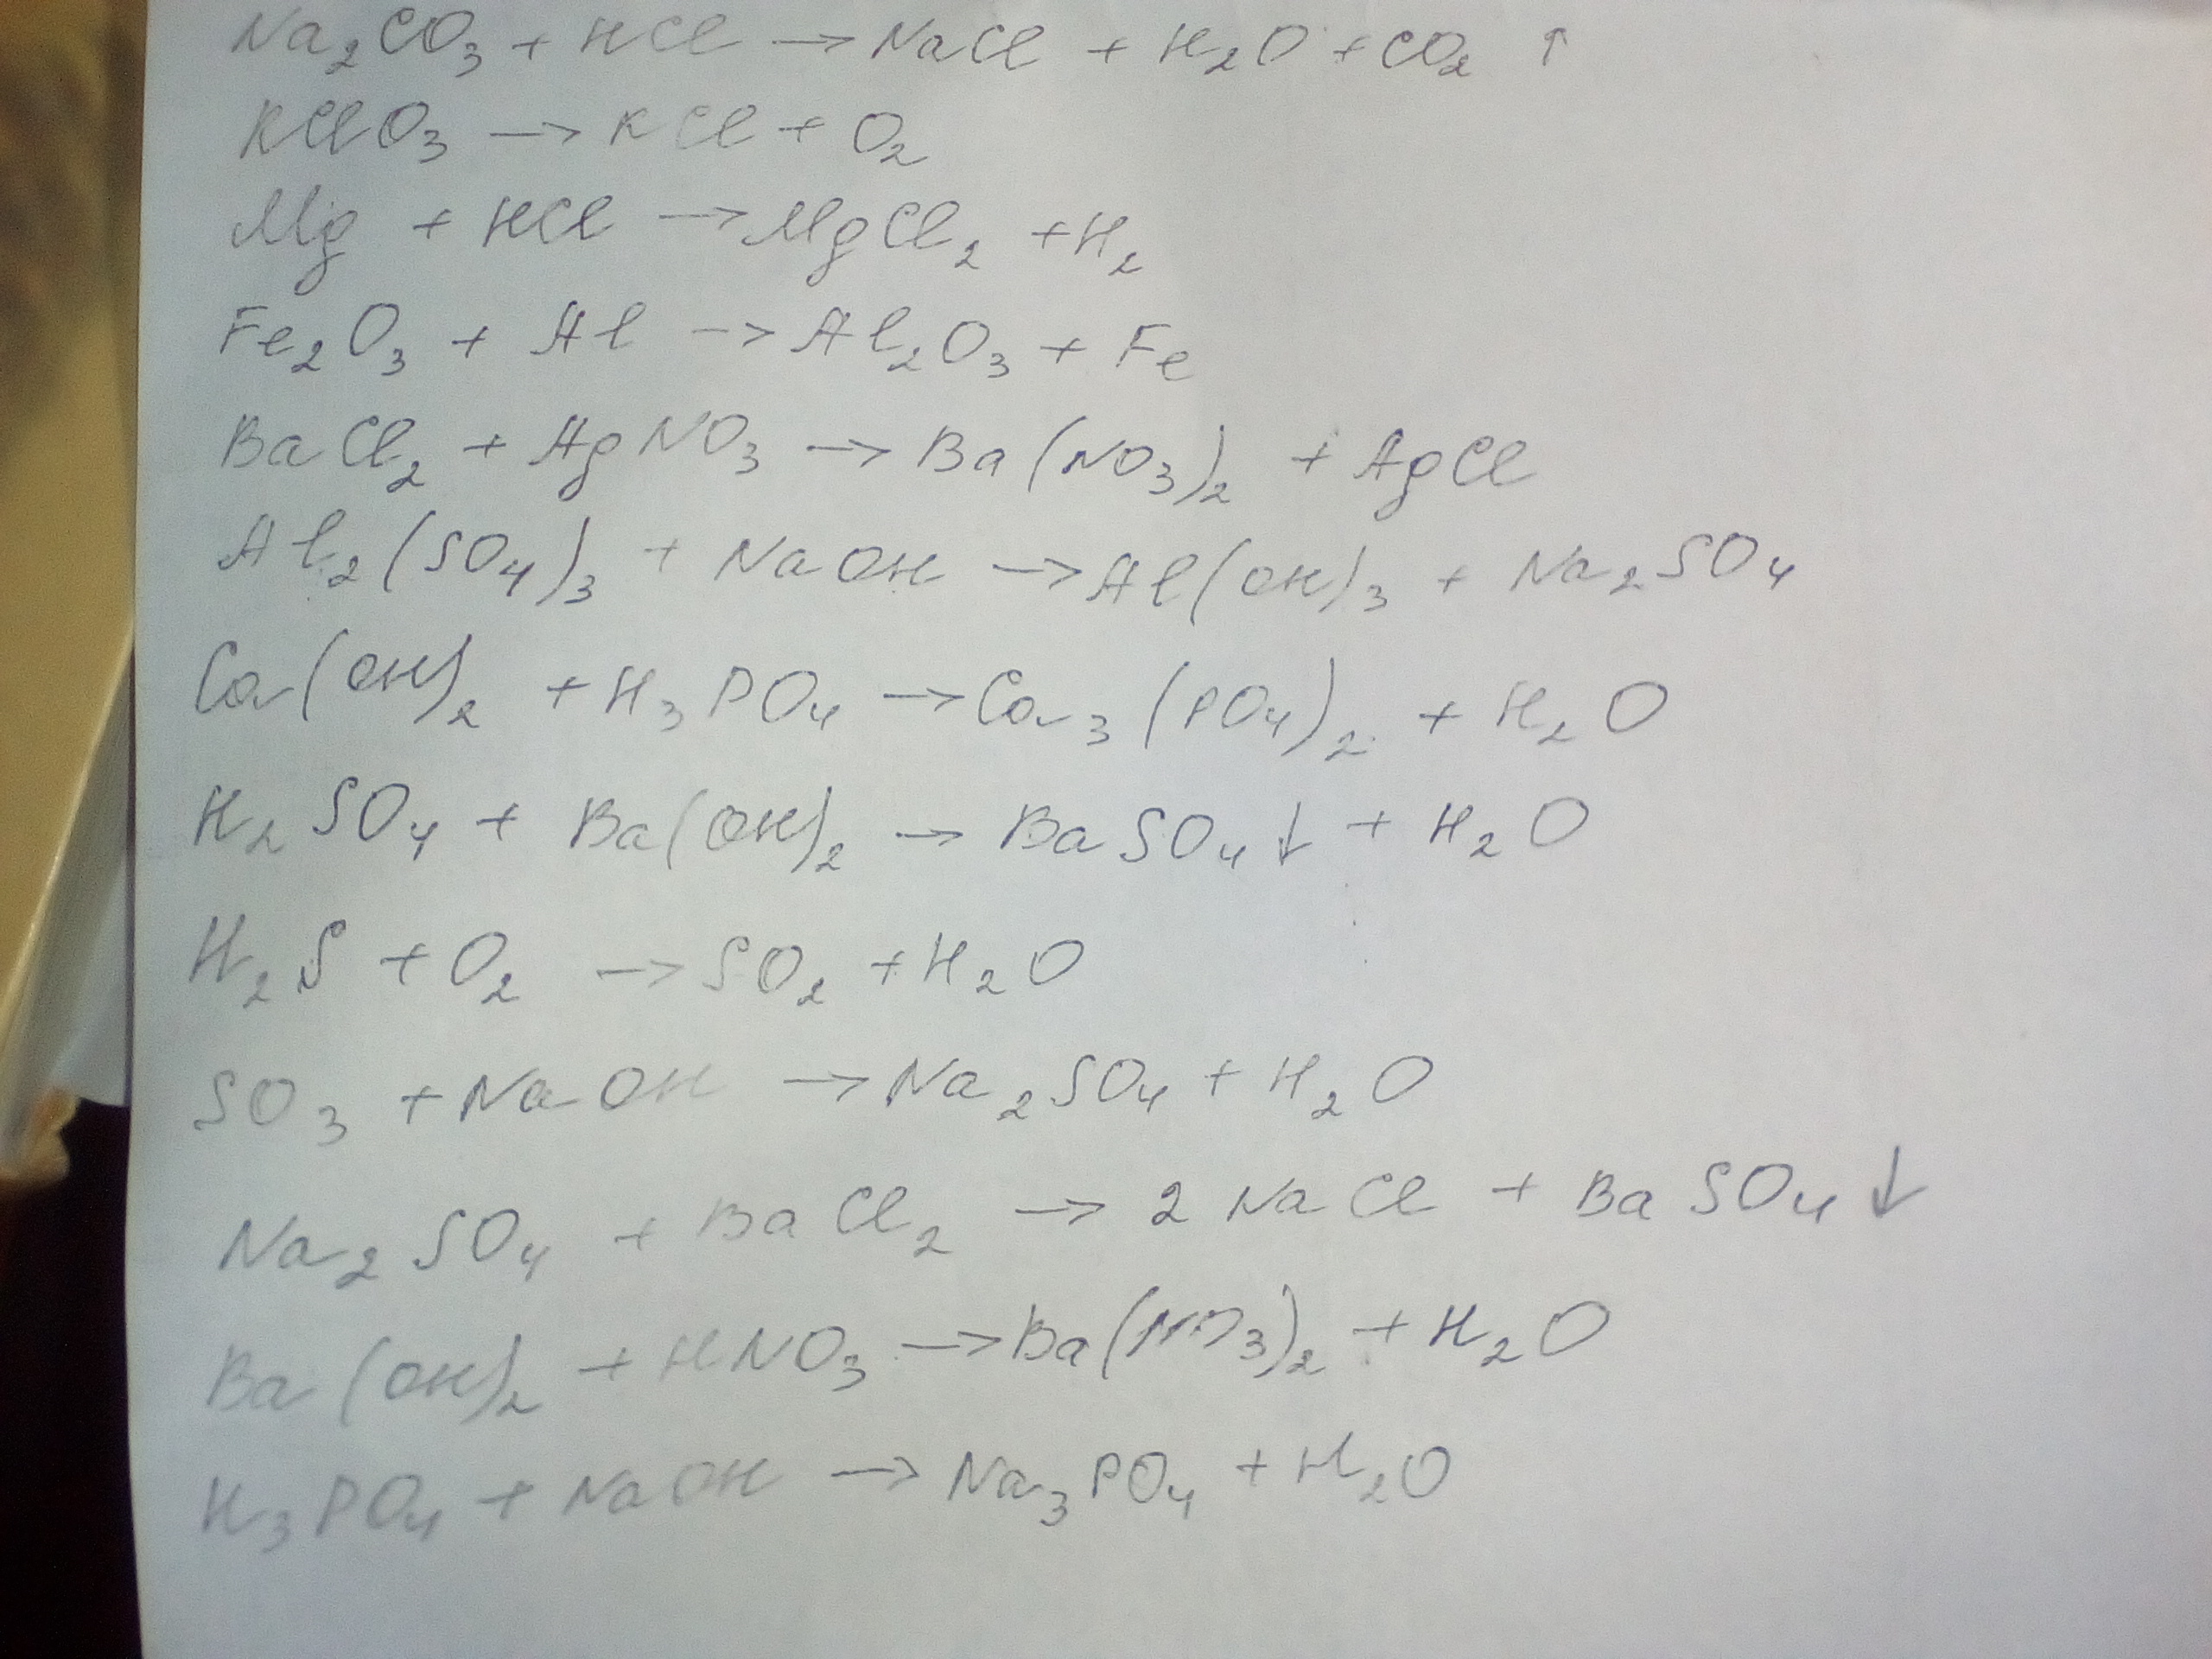 Na₂CO₃ + HCl → NaCl + H₂O + CO₂ ↑
KClO₃ → KCl + O₂
Mg + HCl → MgCl₂ + H₂
Fe₂O₃ + Al → Al₂O₃ + Fe
BaCl₂ + AgNO₃ → Ba(NO₃)₂ + AgCl
Al₂(SO₄)₃ + NaOH → Al(OH)₃ + Na₂SO₄
Ca(OH)₂ + H₃PO₄ → Ca₃(PO₄)₂ + H₂O
H₂SO₄ + Ba(OH)₂ → BaSO₄↓ + H₂O
H₂S + O₂ → SO₂ + H₂O
SO₃ + NaOH → Na₂SO₄ + H₂O
Na₂SO₄ + BaCl₂ → 2 NaCl + BaSO₄↓
Ba(OH)₂ + HNO₃ → Ba(NO₃)₂ + H₂O
H₃PO₄ + NaOH → Na₃PO₄ + H₂O